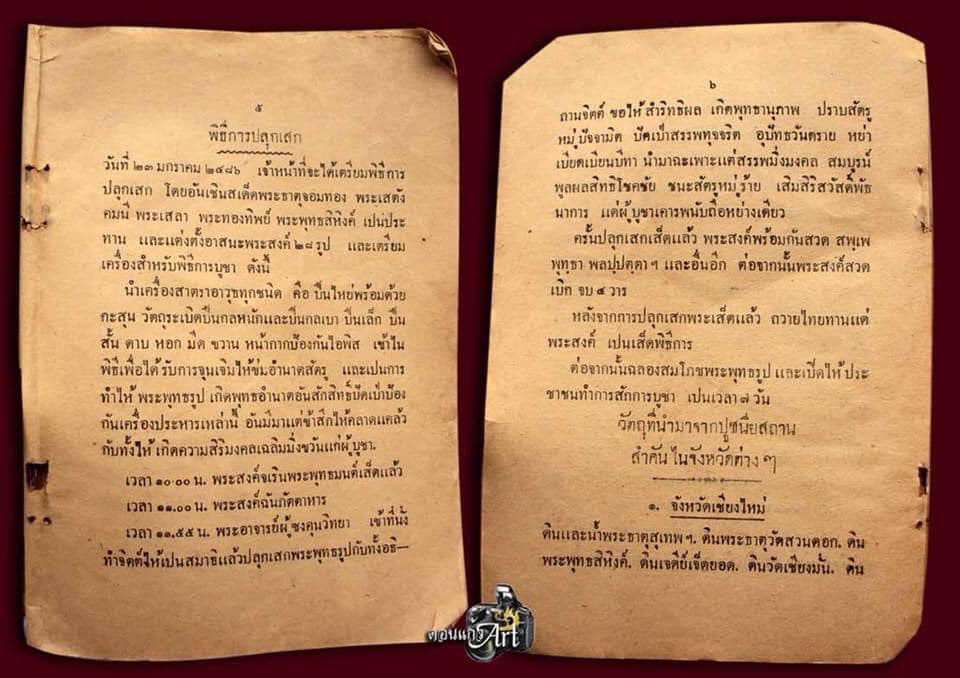 ๕
พิธีการปลุกเสก
วันที่ ๒๓ มกราคม ๒๔๘๖ เจ้าหน้าที่จะได้เตรียมพิธีการ
ปลุกเสก โดยอันเชินสเด็ดพระธาตุจอมทอง พระเสตัง
คมนี พระเสลา พระทองทิพย์ พระพุทธสิหิงค์ เปนประ
ทาน และแต่งตั้งอาสนะพระสงค์ ๒๘ รูป และเตรียม
เครื่องสำหรับพิธีการบูชา ดังนี้
นำเครื่องสาตราอาวุธทุกชนิด คือ ปืนไหย่พร้อมด้วย
กะสุน วัตถุระเบิดปืนกลหนักและปืนกลเบา ปืนเล็ก ปืน
สั้น ดาบ หอก มีด ขวาน หน้ากากป้องกันไอพิส เข้าไน
พิธีเพื่อได้รับการจุนเจิมให้ข่มอำนาดสัตรู และเปนการ
ทำให้ พระพุทธรูป เกิดพุทธอำนาดอันสักสิทธิ์ปัดเป่าป้อง
กันเครื่องประหารเหล่านี้ อันมีมาแต่ข้าสึกให้คลาดแคล้ว
กับทั้งให้ เกิดความสิริมงคลเฉลิมมิ่งขวันแก่ผู้บูชา.
เวลา ๑๐.๐๐ น. พระสงค์จเรินพระพุทธมนต์เส็ดแล้ว
เวลา ๑๑.๐๐ น. พระสงค์ฉันภัตตาหาร
เวลา ๑๑.๕๕ น. พระอาจารย์ผู้ซงคุนวิทยา เข้าที่นั่ง
ทำจิตต์ให้เปนสมาธิแล้วปลุกเสกพระพุทธรูปกับทั้งอธิ—
๖
ถานจิตต์ ขอให้ สำริทธิผล เกิดพุทธานุภาพ ปราบสัตรู
หมู่ปัจจามิต ปัดเป่าสรรพทุจจริต อุปัทธวันตราย หย่า
เบียดเบียนบีทา นำมาฉะเพาะแต่สรรพมิ่งมงคล สมบูรน์
พูลผลสิทธิโชคชัย ชนะสัตรูหมู่ร้าย เสิมสิริสวัสดิ์พัธ
นาการ แต่ผู้บูชาเคารพนับถือหย่างเดียว
ครั้นปลุกเสกเส็ดแล้ว พระสงค์พร้อมกันสวด สพฺเพ
พุทฺธา พลปฺปตฺตา ฯ และอื่นอีก ต่อจากนั้นพระสงค์สวด
เบิก จบ ๔ วาร
หลังจากการปลุกเสกพระเส็ดแล้ว ถวายไทยทานแต่
พระสงค์ เปนเส็ดพิธีการ
ต่อจากนั้นฉลองสมโภชพระพุทธรูป และเปิดให้ ประ
ชาชนทำการสักการะบูชา เปนเวลา ๗ วัน
วัตถุที่นำมาจากปูชนียสถาน
สำคันไนจังหวัดต่าง ๆ
๑. จังหวัดเชียงใหม่
ดินและน้ำพระธาตุสุเทพ ฯ. ดินพระธาตุวัดสวนดอก. ดิน
พระพุทธสิหิงค์. ดินเจดีย์เจ็ดยอด. ดินวัดเชียงมั่น. ดิน
ดอนแก้ว
Art